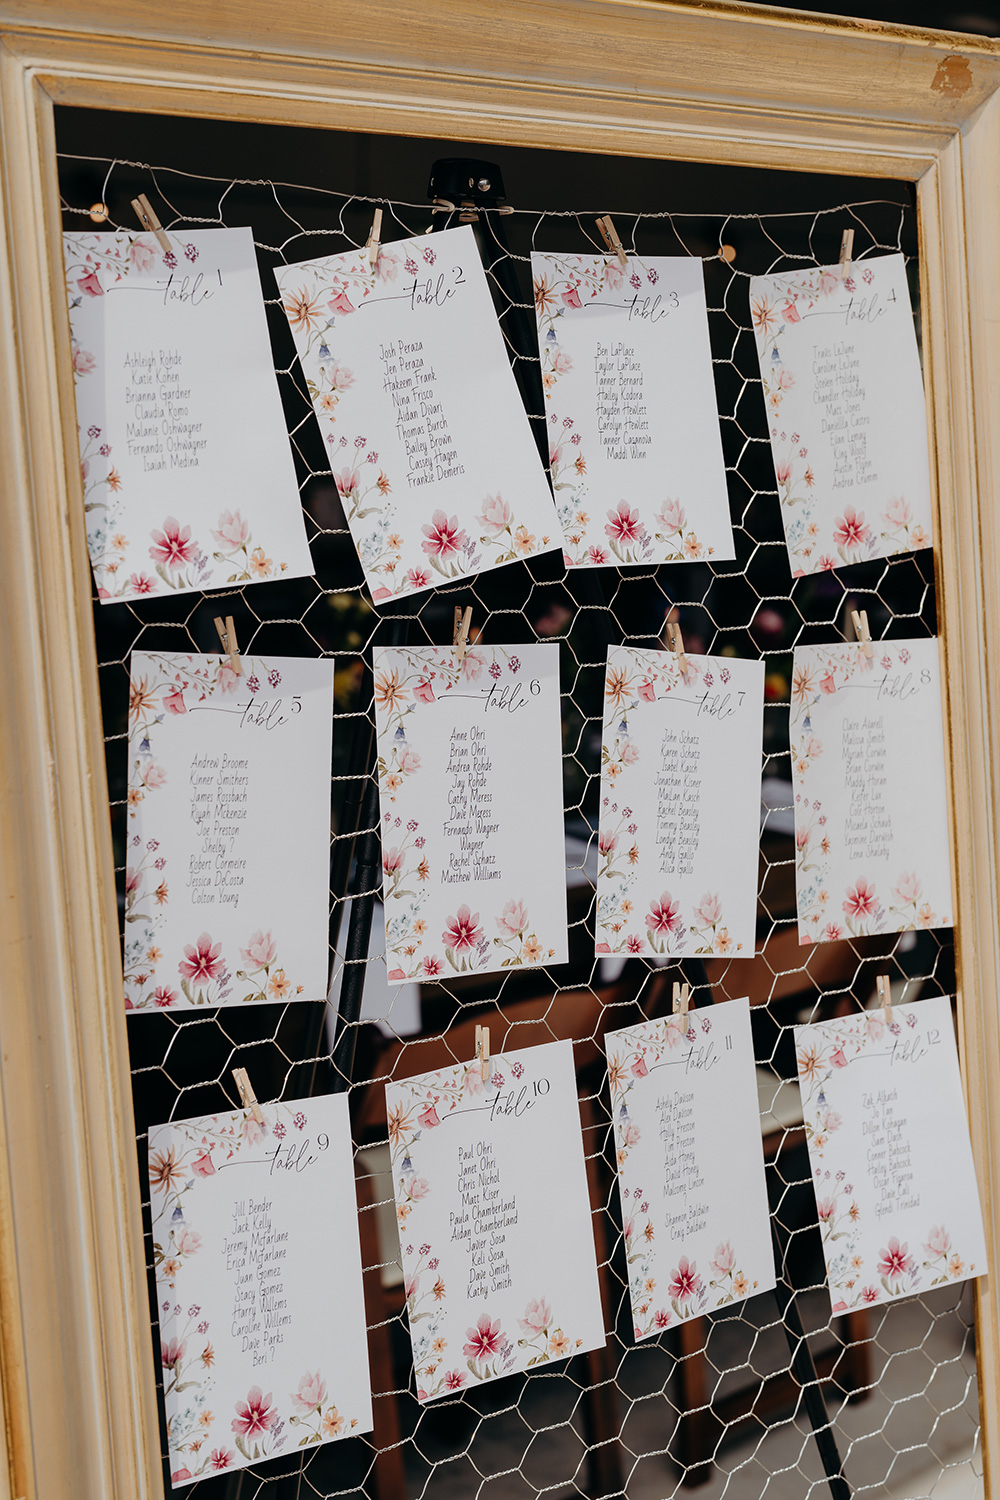 table 1
Ashleigh Rohde
Katie Kohen
Brianna Gardner
Claudia Romo
Malanie Oshwagner
Fernando Oshwagner
Isaiah Medina
table 2
Josh Peraza
Jen Peraza
Hakeem Frank
Nina Frisco
Aidan Divari
Thomas Burch
Bailey Brown
Cassey Hagen
Frankie Demeris
table 3
Ben LaPlace
Taylor LaPlace
Tanner Bernard
Hailey Kodora
Hayden Hewlett
Carolyn Hewlett
Tanner Casanova
Maddi Winn
table 4
Travis LaJune
Caroline LaJune
Steven Holiday
Chandler Holiday
Matt Jones
Daniella Castro
Evan Lemey
King
Austin Flynn
Andrea Crumm
table 5
Andrew Broome
Kinner Smithers
James Rossbach
Rijah Mckenzie
Joe Preston
Shelby ?
Robert Cormeire
Jessica DeCosta
Colton Young
table 6
Anne Ohri
Brian Ohri
Andrea Rohde
Jay Rohde
Cathy Meress
Dave Meress
Fernando Wagner
Wagner
Rachel Schatz
Matthew Williams
table 7
John Schatz
Karen Schatz
Isabel Kasch
Jonathan Kisner
MaCan Kasch
Rachel Beasley
Tommy Beasley
Londyn Beasley
Andy Gallo
Alica Gallo
table 8
Claire Adarell
Malissa Smith
Myriah Corwin
Brian Corwin
Maddy Horan
Keifer Lun
Cole Horton
Micaela Schaud
Yasmine Darwish
Lena Shalaby
table 9
Jill Bender
Jack Kelly
Jeremy McFarlane
Erica McFarlane
Juan Gomez
Stacy Gomez
Harry Willems
Caroline Willems
Dave Parks
Beri ?
table 10
Paul Ohri
Janet Ohri
Chris Nichol
Matt Kiser
Paula Chamberland
Aidan Chamberland
Javier Sosa
Keli Sosa
Dave Smith
Kathy Smith
table 11
Ashely Davison
Alex Davison
Holly Preston
Tim Preston
Aida Honey
David Honey
Malcomg Linton
Shannon Baldwin
Craig Baldwin
table 12
Zak
Jo Tan
Dillon Kohagan
Sam Dach
Conner Babcock
Hailey Babcock
Oscar Figaroa
Dave Call
Glendi Trinidad